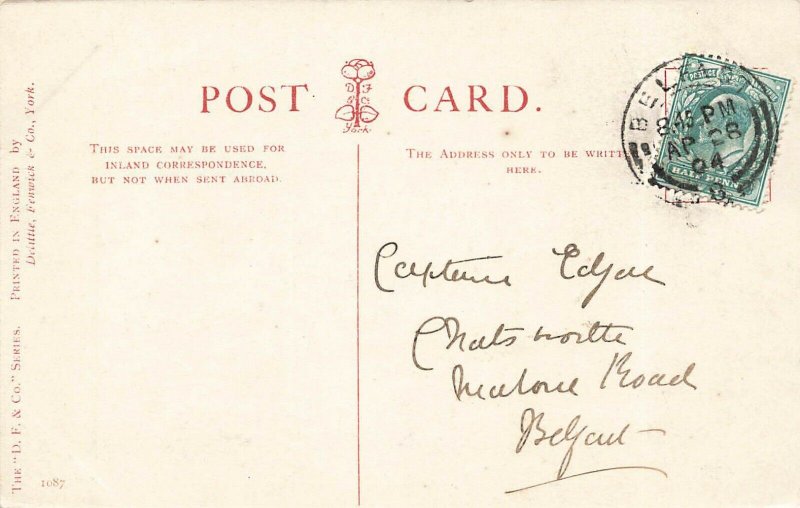 POST CARD.
D F
& Co
York
THIS SPACE MAY BE USED FOR
INLAND CORRESPONDENCE,
BUT NOT WHEN SENT ABROAD.
THE ADDRESS ONLY TO BE WRITT
HERE.
BEL
8.45 PM
AP 28
04
POSTAGE
HALF PENNY
Captain Edgar
Chatsworth
Malone Road
Belfast
THE "D. F. & CO." SERIES. PRINTED IN ENGLAND by
Delittle, Fenwick & Co., York.
1087